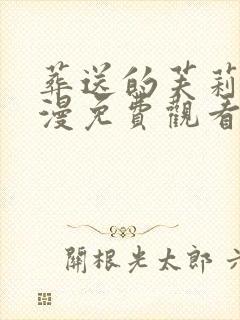 葬送的芙莉
漫免費觀看
關根光太郎 六